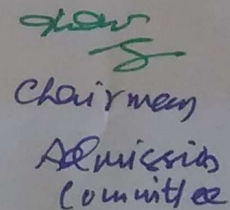 Chairman
Admission
Committee